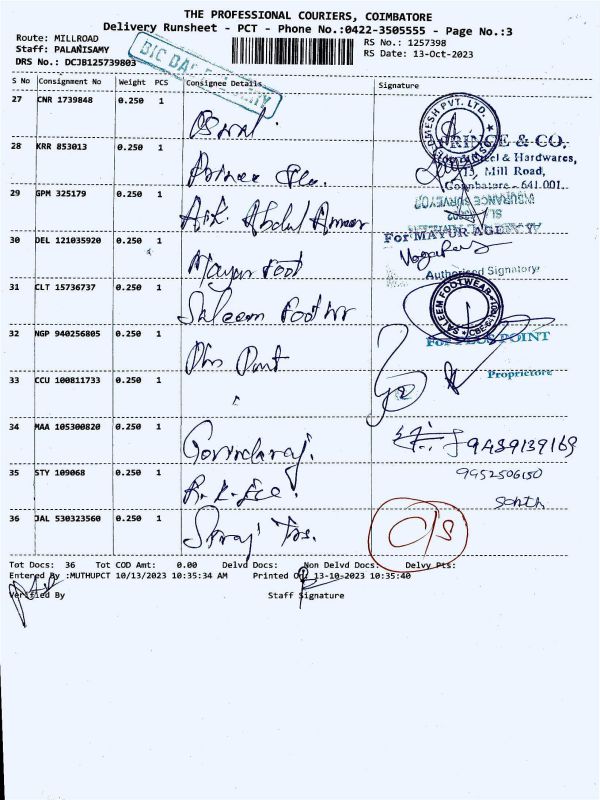 THE PROFESSIONAL COURIERS, COIMBATORE
Delivery Runsheet - PCT - Phone No.:0422-3505555 - Page No.:3
Route: MILLROAD
RS No.: 1257398
Staff: PALANISAMY
RS Date: 13-Oct-2023
DRS No.: DCJB125739803
S No Consignment No Weight PCS Consignee Details Signature
27 CNR 1739848 0.250 1
28 KRR 853013 0.250 1
PRINCE & CO.
Steel & Hardwares,
13, Mill Road,
Coimbatore - 641 001.
Prince
29 GPM 325179 0.250 1
INSURANCE SURVEYOR
A.K. Abdul Ameer
30 DEL 121035920 0.250 1
For MAYUR AGENCY
Mayur Foot
Authorised Signatory
31 CLT 15736737 0.250 1
SALEEM FOOTWEAR
Saleem Foot
32 NGP 940256805 0.250 1
For PLUS POINT
Plus Point
Proprietor
33 CCU 100811733 0.250 1
"
34 MAA 105300820 0.250 1
9489139169
Govindaraj.
35 STY 109068 0.250 1
9952506150
R.K. Ece.
36 JAL 530323560 0.250 1
O/S
Tot Docs: 36 Tot COD Amt: 0.00 Delvd Docs: Non Delvd Docs: Delvy Pts:
Entered By :MUTHUPCT 10/13/2023 10:35:34 AM Printed On 13-10-2023 10:35:40
Verified By Staff Signature